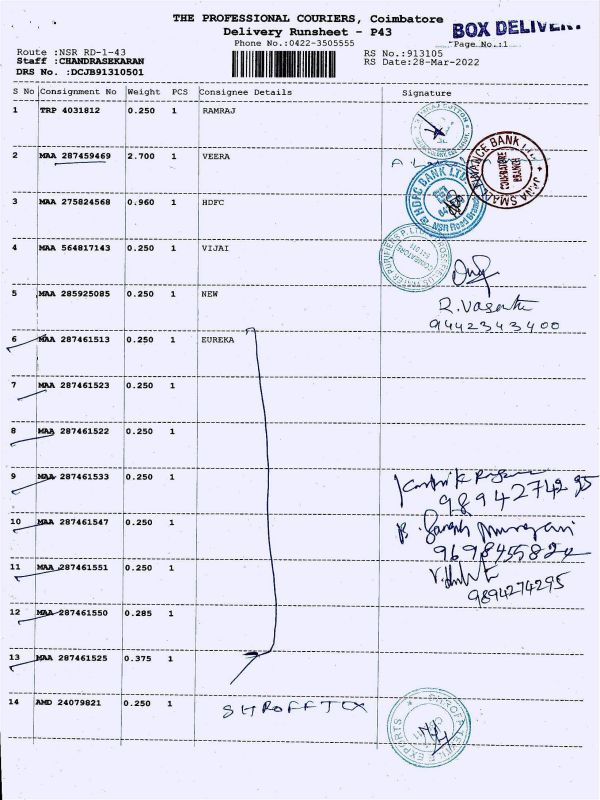 THE PROFESSIONAL COURIERS, Coimbatore
Delivery Runsheet - P43
BOX DELIVERY
Phone No.:0422-3505555
Page No.:1
Route :NSR RD-1-43
RS No.:913105
Staff :CHANDRASEKARAN
RS Date:28-Mar-2022
DRS No. :DCJB91310501
S No Consignment No Weight PCS Consignee Details Signature
1 TRP 4031812 0.250 1 RAMRAJ
2 MAA 287459469 2.700 1 VEERA
3 MAA 275824568 0.960 1 HDFC
HDFC BANK LTD
NSR Road Branch
COIMBATORE BRANCH
4 MAA 564817143 0.250 1 VIJAI
5 MAA 285925085 0.250 1 NEW
R. Vasanth
9442343400
6 MAA 287461513 0.250 1 EUREKA
7 MAA 287461523 0.250 1
8 MAA 287461522 0.250 1
9 MAA 287461533 0.250 1
9894274295
10 MAA 287461547 0.250 1
9698455824
11 MAA 287461551 0.250 1
9894274295
12 MAA 287461550 0.285 1
13 MAA 287461525 0.375 1
14 AMD 24079821 0.250 1 SHROFFTEX